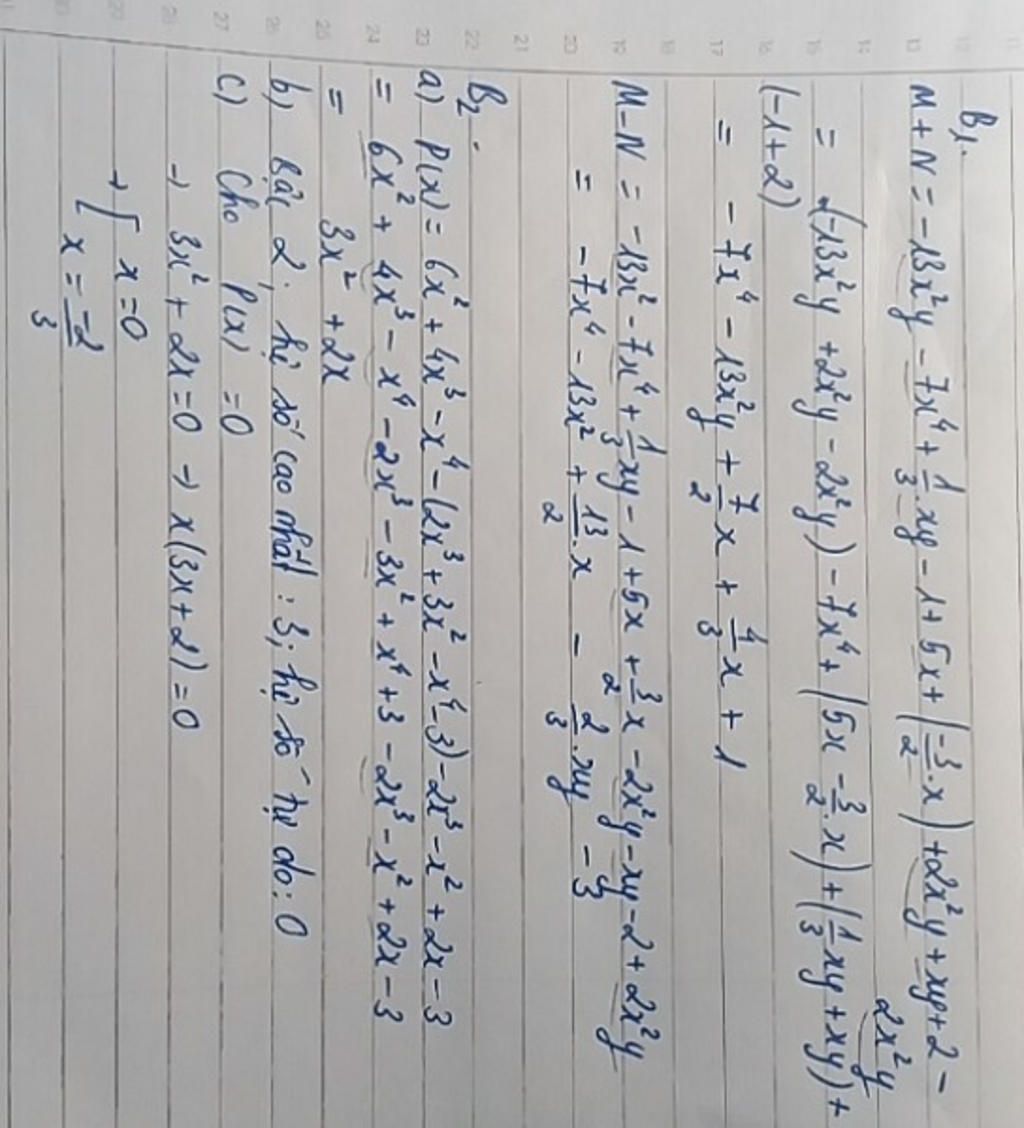 B1.
M + N = -13x²y - 7x⁴ + 1/3.xy - 1 + 5x + (-3/2.x) + 2x²y + xy + 2 -
2x²y
= (-13x²y + 2x²y - 2x²y) - 7x⁴ + (5x - 3/2.x) + (1/3xy + xy) +
(-1+2)
= -7x⁴ - 13x²y + 7/2x + 4/3x + 1
M - N = -13x² - 7x⁴ + 1/3xy - 1 + 5x + 3/2x - 2x²y - xy - 2 + 2x²y
= -7x⁴ - 13x² + 13/2.x - 2/3.xy - 3
B2.
a) P(x) = 6x² + 4x³ - x⁴ - (2x³ + 3x² - x⁴ - 3) - 2x³ - x² + 2x - 3
= 6x² + 4x³ - x⁴ - 2x³ - 3x² + x⁴ + 3 - 2x³ - x² + 2x - 3
= 3x² + 2x
b) Bậc 2; hệ số cao nhất : 3; hệ số tự do: 0
c) Cho P(x) = 0
→ 3x² + 2x = 0 → x(3x + 2) = 0
→ [ x = 0
x = -2/3
12
13
14
15
16
17
18
19
20
21
22
23
24
25
26
27
28
29